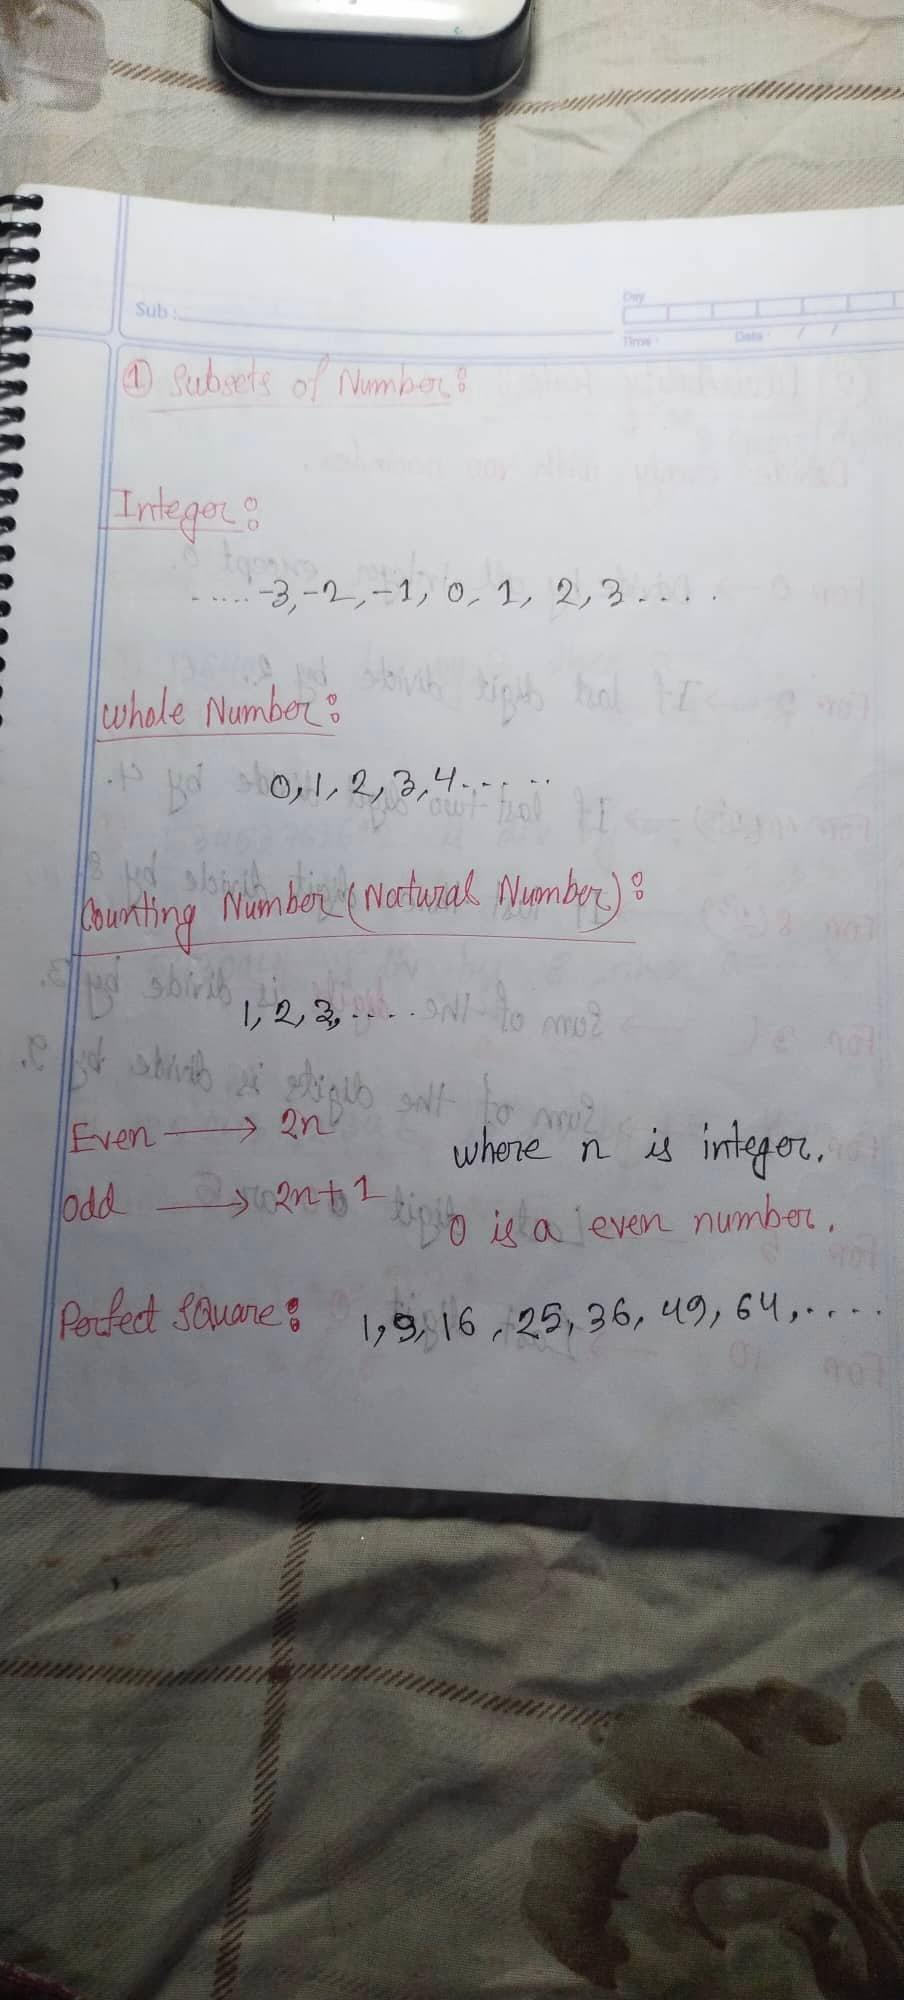 Sub:
Day
Time: Date: / /
① Subsets of Number:
Integer:
.....-3,-2,-1, 0, 1, 2,3....
Whole Number:
0,1,2,3,4......
Counting Number (Natural Number):
1,2,3,.....
Even → 2n
where n is integer.
Odd → 2n+1
0 is a even number.
Perfect Square: 1,9,16,25,36,49,64,.....